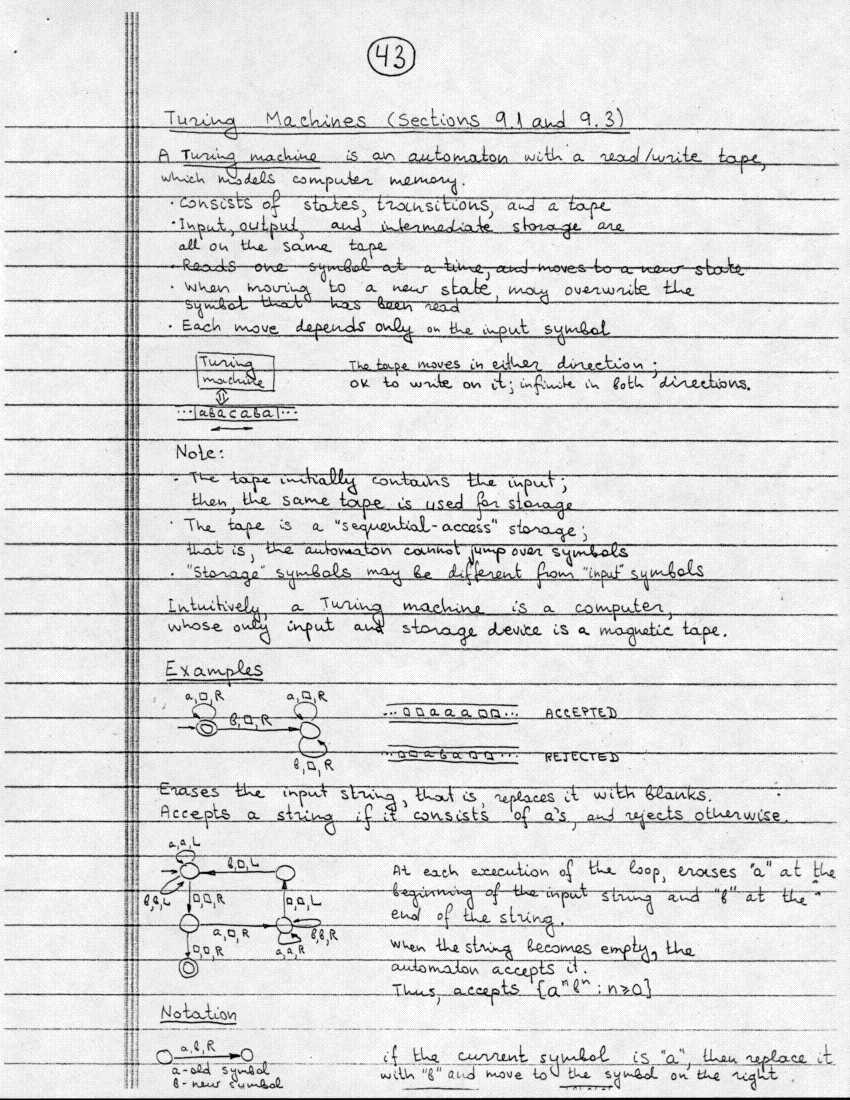 43
Turing Machines (Sections 9.1 and 9.3)
A Turing machine is an automaton with a read/write tape,
which models computer memory.
· Consists of states, transitions, and a tape
· Input, output, and intermediate storage are
all on the same tape
· Reads one symbol at a time, and moves to a new state
· When moving to a new state, may overwrite the
symbol that has been read
· Each move depends only on the input symbol
Turing
machine
The tape moves in either direction;
ok to write on it; infinite in both directions.
...|abacaba|...
Note:
· The tape initially contains the input;
then, the same tape is used for storage
· The tape is a "sequential-access" storage;
that is, the automaton cannot jump over symbols
· "Storage" symbols may be different from "input" symbols
Intuitively, a Turing machine is a computer,
whose only input and storage device is a magnetic tape.
Examples
a,□,R a,□,R
b,□,R
...□□aaa□□... ACCEPTED
b,□,R
...□□aba□□... REJECTED
Erases the input string, that is, replaces it with blanks.
Accepts a string if it consists of a's, and rejects otherwise.
a,a,L
b,□,L
b,b,L □,□,R □,□,L
a,□,R b,b,R
□,□,R a,a,R
At each execution of the loop, erases "a" at the
beginning of the input string and "b" at the
end of the string.
When the string becomes empty, the
automaton accepts it.
Thus, accepts {aⁿbⁿ : n≥0}
Notation
a,b,R
a-old symbol
b-new symbol
if the current symbol is "a", then replace it
with "b" and move to the symbol on the right